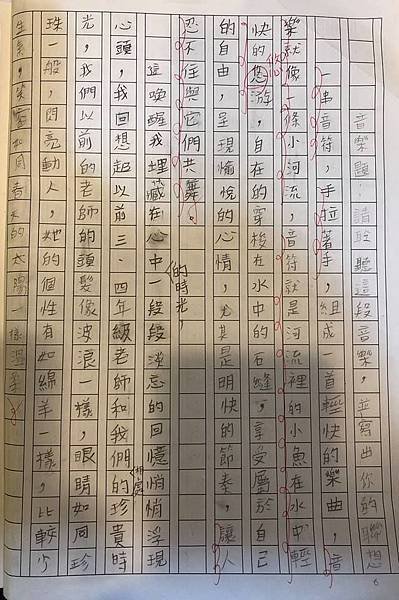 音樂題：請聆聽這段音樂，並寫出你的聯想
一串音符，手拉著手，組成一首輕快的樂曲，音
樂就像一條小河流，音符就是河流裡的小魚在水中輕
快的悠游，自在的穿梭在水中的石縫，享受屬於自己
的自由，呈現愉悅的心情，尤其是明快的節奏，讓人
忍不住與它們共舞。
這喚醒我埋藏在心中一段段淡忘的的時光，回憶悄悄浮現
心頭，我回想起以前三、四年級老師和我們相處的珍貴時
光，我們以前的老師的頭髮像波浪一樣，眼睛如同珍
珠一般，閃亮動人，她的個性有如綿羊一樣，比較少
生氣，笑容如同春天的太陽一樣溫柔
6